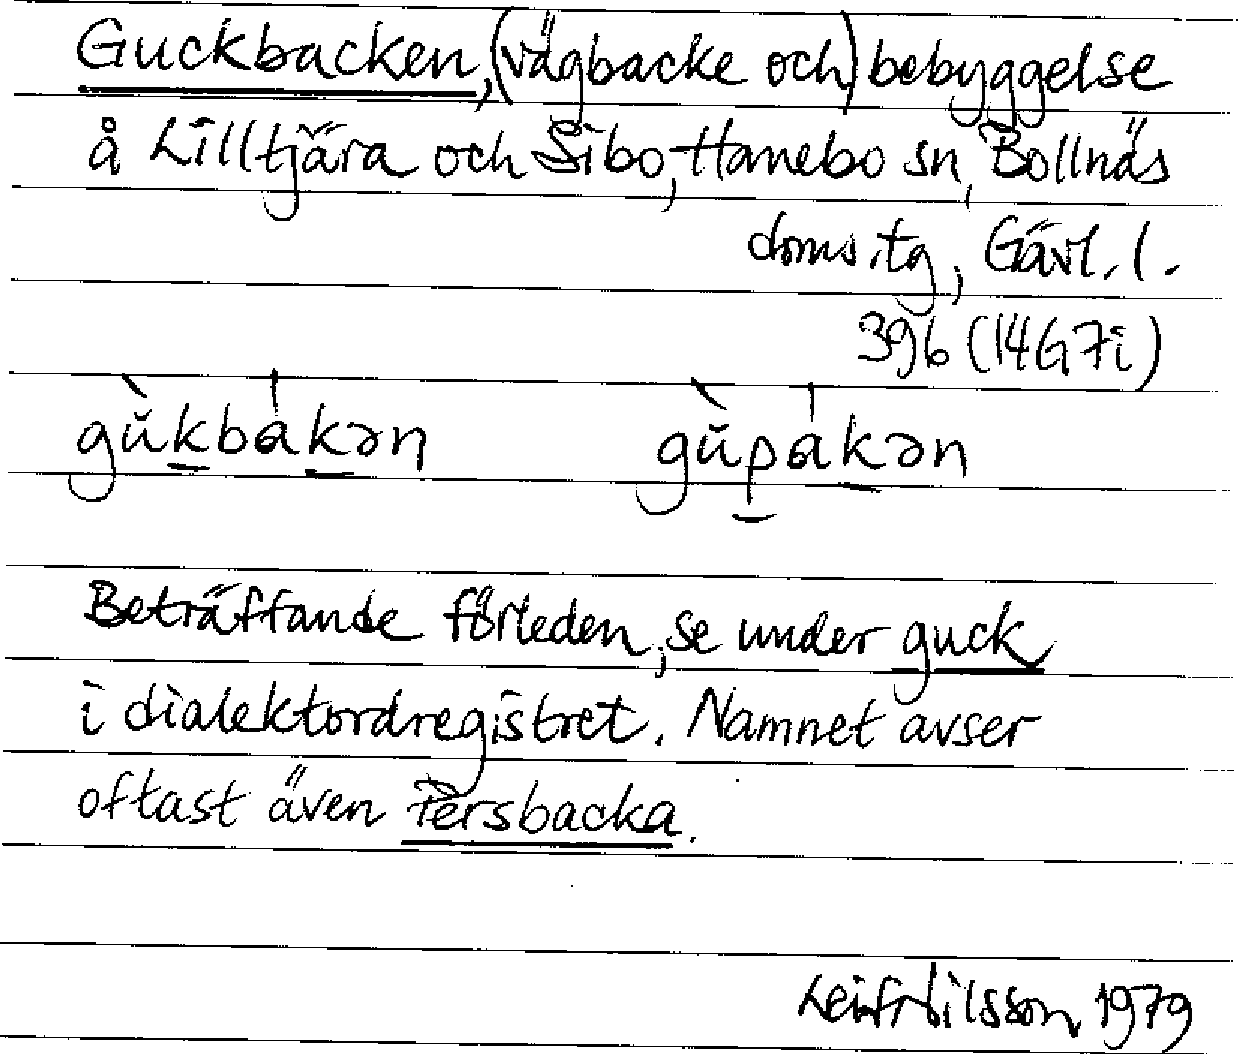 Guckbacken, (vägbacke och) bebyggelse
å Lilltjära och Sibo, Hanebo sn, Bollnäs
doms.tg, Gävl. l.
396 (14G7i)
gù̆kbákən gù̆pákən
Beträffande förleden, se under guck
i dialektordregistret. Namnet avser
oftast även Persbacka.
Leif Nilsson 1979